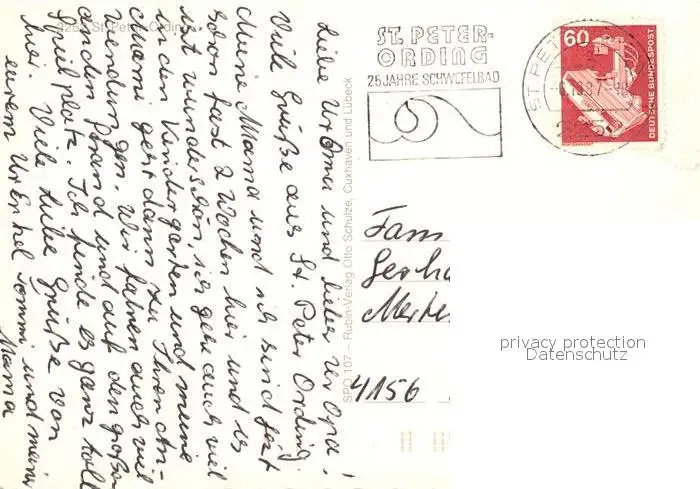 Liebe Ur Oma und lieber Ur Opa!
Viele Grüße aus St. Peter Ording.
Meine Mama und ich sind jetzt
schon fast 2 Wochen hier und es
ist wunderschön, ich gehe auch viel
in den Kindergarten und meine
Mami geht dann zu Ihren An-
wendungen. Wir fahren auch viel
an den Strand und auf den großen
Spielplatz. Ich finde es ganz toll
hier. Viele liebe Grüße von
eurem Ur Enkel Tommi und meine
Mama
St. Peter-Ording
SPO 107 – Rubin-Verlag Otto Schulze, Cuxhaven und Lübeck
ST. PETER-
ORDING
25 JAHRE SCHWEFELBAD
ST. PET
60
DEUTSCHE BUNDESPOST
Fam
Gerha
Merte
4156
privacy protection
Datenschutz